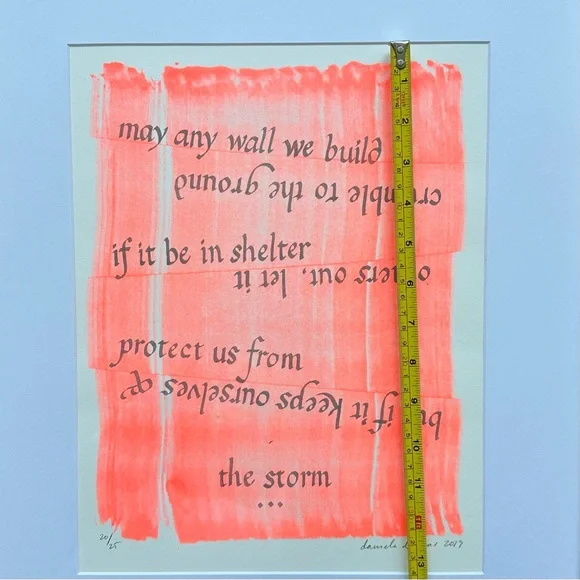 may any wall we build
crumble to the ground
if it be in shelter
others out, let it
protect us from
but if it keeps ourselves &
the storm
20/25
2017
1
2
3
4
5
6
7
8
9
10
11
12
13